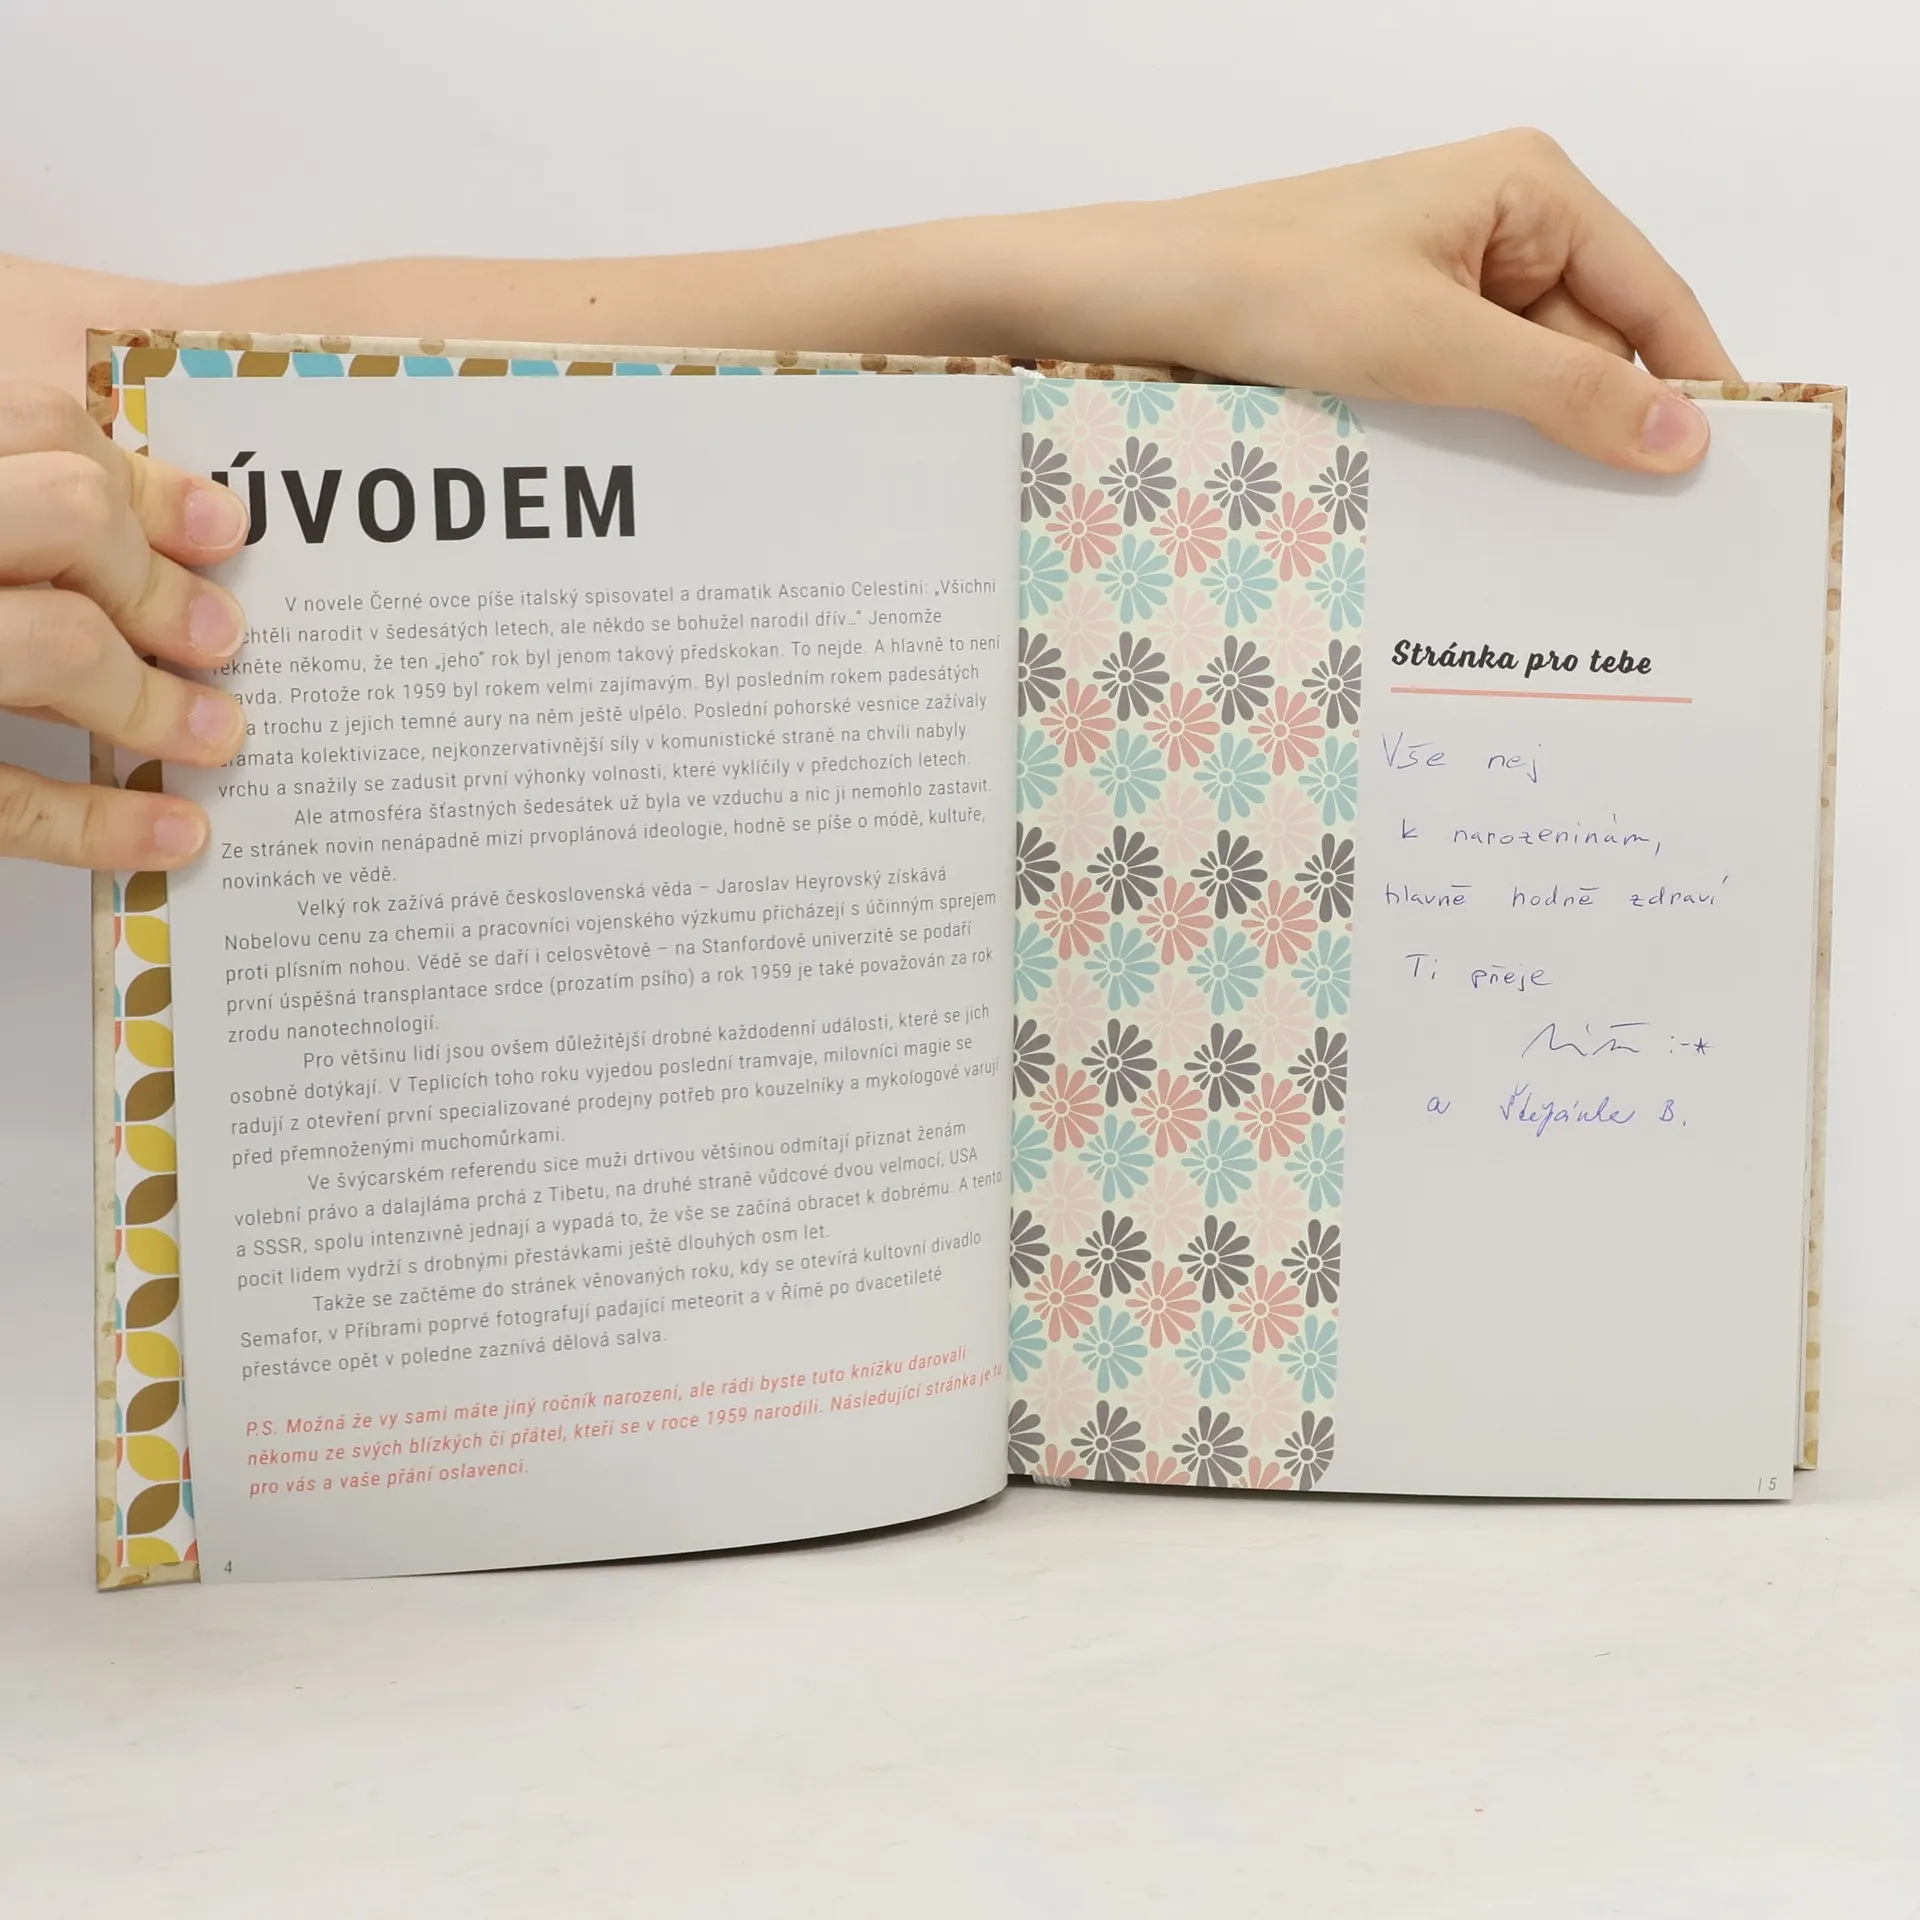 ÚVODEM
V novele Černé ovce píše italský spisovatel a dramatik Ascanio Celestini: „Všichni
chtěli narodit v šedesátých letech, ale někdo se bohužel narodil dřív…“ Jenomže
řekněte někomu, že ten „jeho“ rok byl jenom takový předskokan. To nejde. A hlavně to není
avda. Protože rok 1959 byl rokem velmi zajímavým. Byl posledním rokem padesátých
a trochu z jejich temné aury na něm ještě ulpělo. Poslední pohorské vesnice zažívaly
dramata kolektivizace, nejkonzervativnější síly v komunistické straně na chvíli nabyly
vrchu a snažily se zadusit první výhonky volnosti, které vyklíčily v předchozích letech.
Ale atmosféra šťastných šedesátek už byla ve vzduchu a nic ji nemohlo zastavit.
Ze stránek novin nenápadně mizí prvoplánová ideologie, hodně se píše o módě, kultuře,
novinkách ve vědě.
Velký rok zažívá právě československá věda – Jaroslav Heyrovský získává
Nobelovu cenu za chemii a pracovníci vojenského výzkumu přicházejí s účinným sprejem
proti plísním nohou. Vědě se daří i celosvětově – na Stanfordově univerzitě se podaří
první úspěšná transplantace srdce (prozatím psího) a rok 1959 je také považován za rok
zrodu nanotechnologií.
Pro většinu lidí jsou ovšem důležitější drobné každodenní události, které se jich
osobně dotýkají. V Teplicích toho roku vyjedou poslední tramvaje, milovníci magie se
radují z otevření první specializované prodejny potřeb pro kouzelníky a mykologové varují
před přemnoženými muchomůrkami.
Ve švýcarském referendu sice muži drtivou většinou odmítají přiznat ženám
volební právo a dalajláma prchá z Tibetu, na druhé straně vůdcové dvou velmocí, USA
a SSSR, spolu intenzivně jednají a vypadá to, že vše se začíná obracet k dobrému. A tento
pocit lidem vydrží s drobnými přestávkami ještě dlouhých osm let.
Takže se začtěme do stránek věnovaných roku, kdy se otevírá kultovní divadlo
Semafor, v Příbrami poprvé fotografují padající meteorit a v Římě po dvacetileté
přestávce opět v poledne zaznívá dělová salva.
P.S. Možná že vy sami máte jiný ročník narození, ale rádi byste tuto knížku darovali
někomu ze svých blízkých či přátel, kteří se v roce 1959 narodili. Následující stránka je tu
pro vás a vaše přání oslavenci.
4
Stránka pro tebe
Vše nej
k narozeninám,
hlavně hodně zdraví
Ti přeje
:-*
a Štěpánka B.
| 5